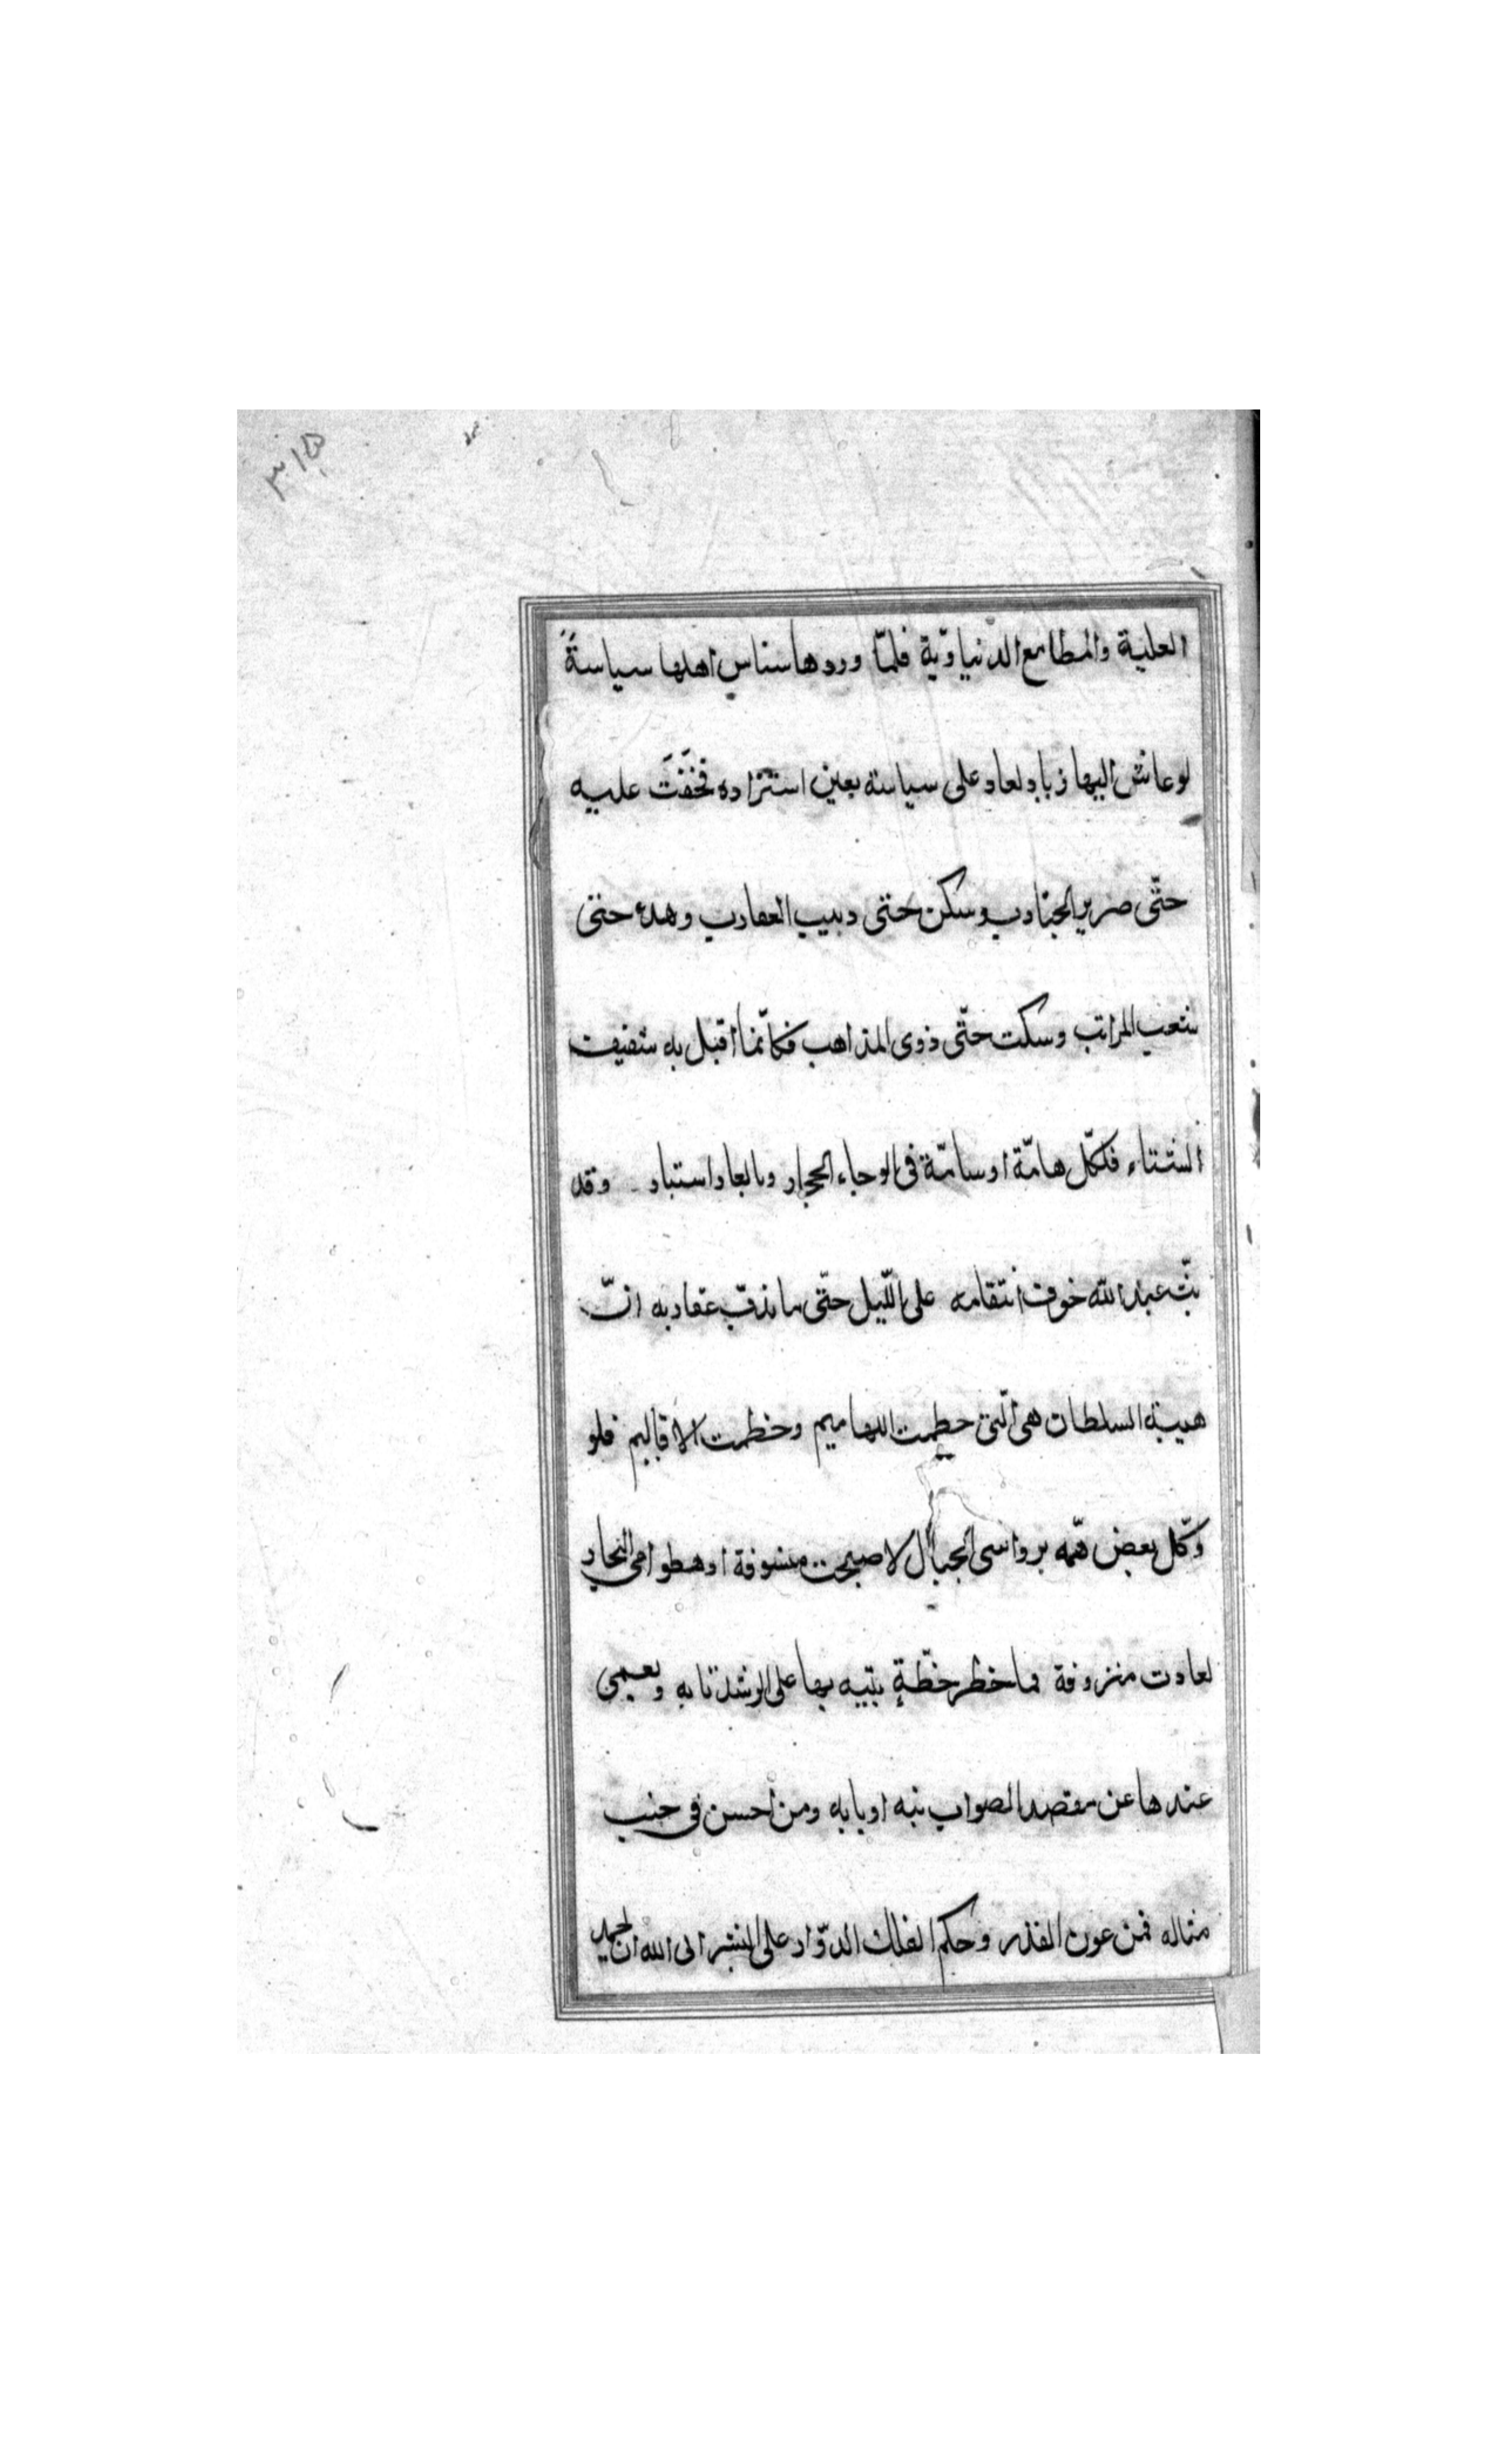 ٣١٥
العلية والمطامع الدنياويّة فلمّا وردها ساس اهلها سياسةً
لو عاش اليها زياد لعاد على سياسته بعين استزاده فخفَتَ عليه
حتّى صرير الجنادب وسكن حتى دبيب العقارب وهدء حتى
شعب المراتب وسكت حتّى ذوى المذاهب فكانّما اقبل به شفيف
الشتاء فلكلّ هامّة او سامّة فى الوجاء الحجار وبالعار استبار وقد
بثّ عبد الله خوف انتقامه على اللّيل حتّى ما تدبّ عقاربه انّ
هيبة السلطان هى الّتى حطمت اللهاميم وخطمت الاقاليم فلو
وكّل بعض همّه برواسى الجبال لاصبحت منسوفة او بطوامى البحار
لعادت منزوفة فما خطر خطّةٍ يتيه بها على الرشد نابه ويعمى
عندها عن مقصد الصواب نبه اوبابه ومن احسن فى جنب
مثاله فمن عون القدر وحكم الفلك الدوّار على البشر الى الله ان الحميد